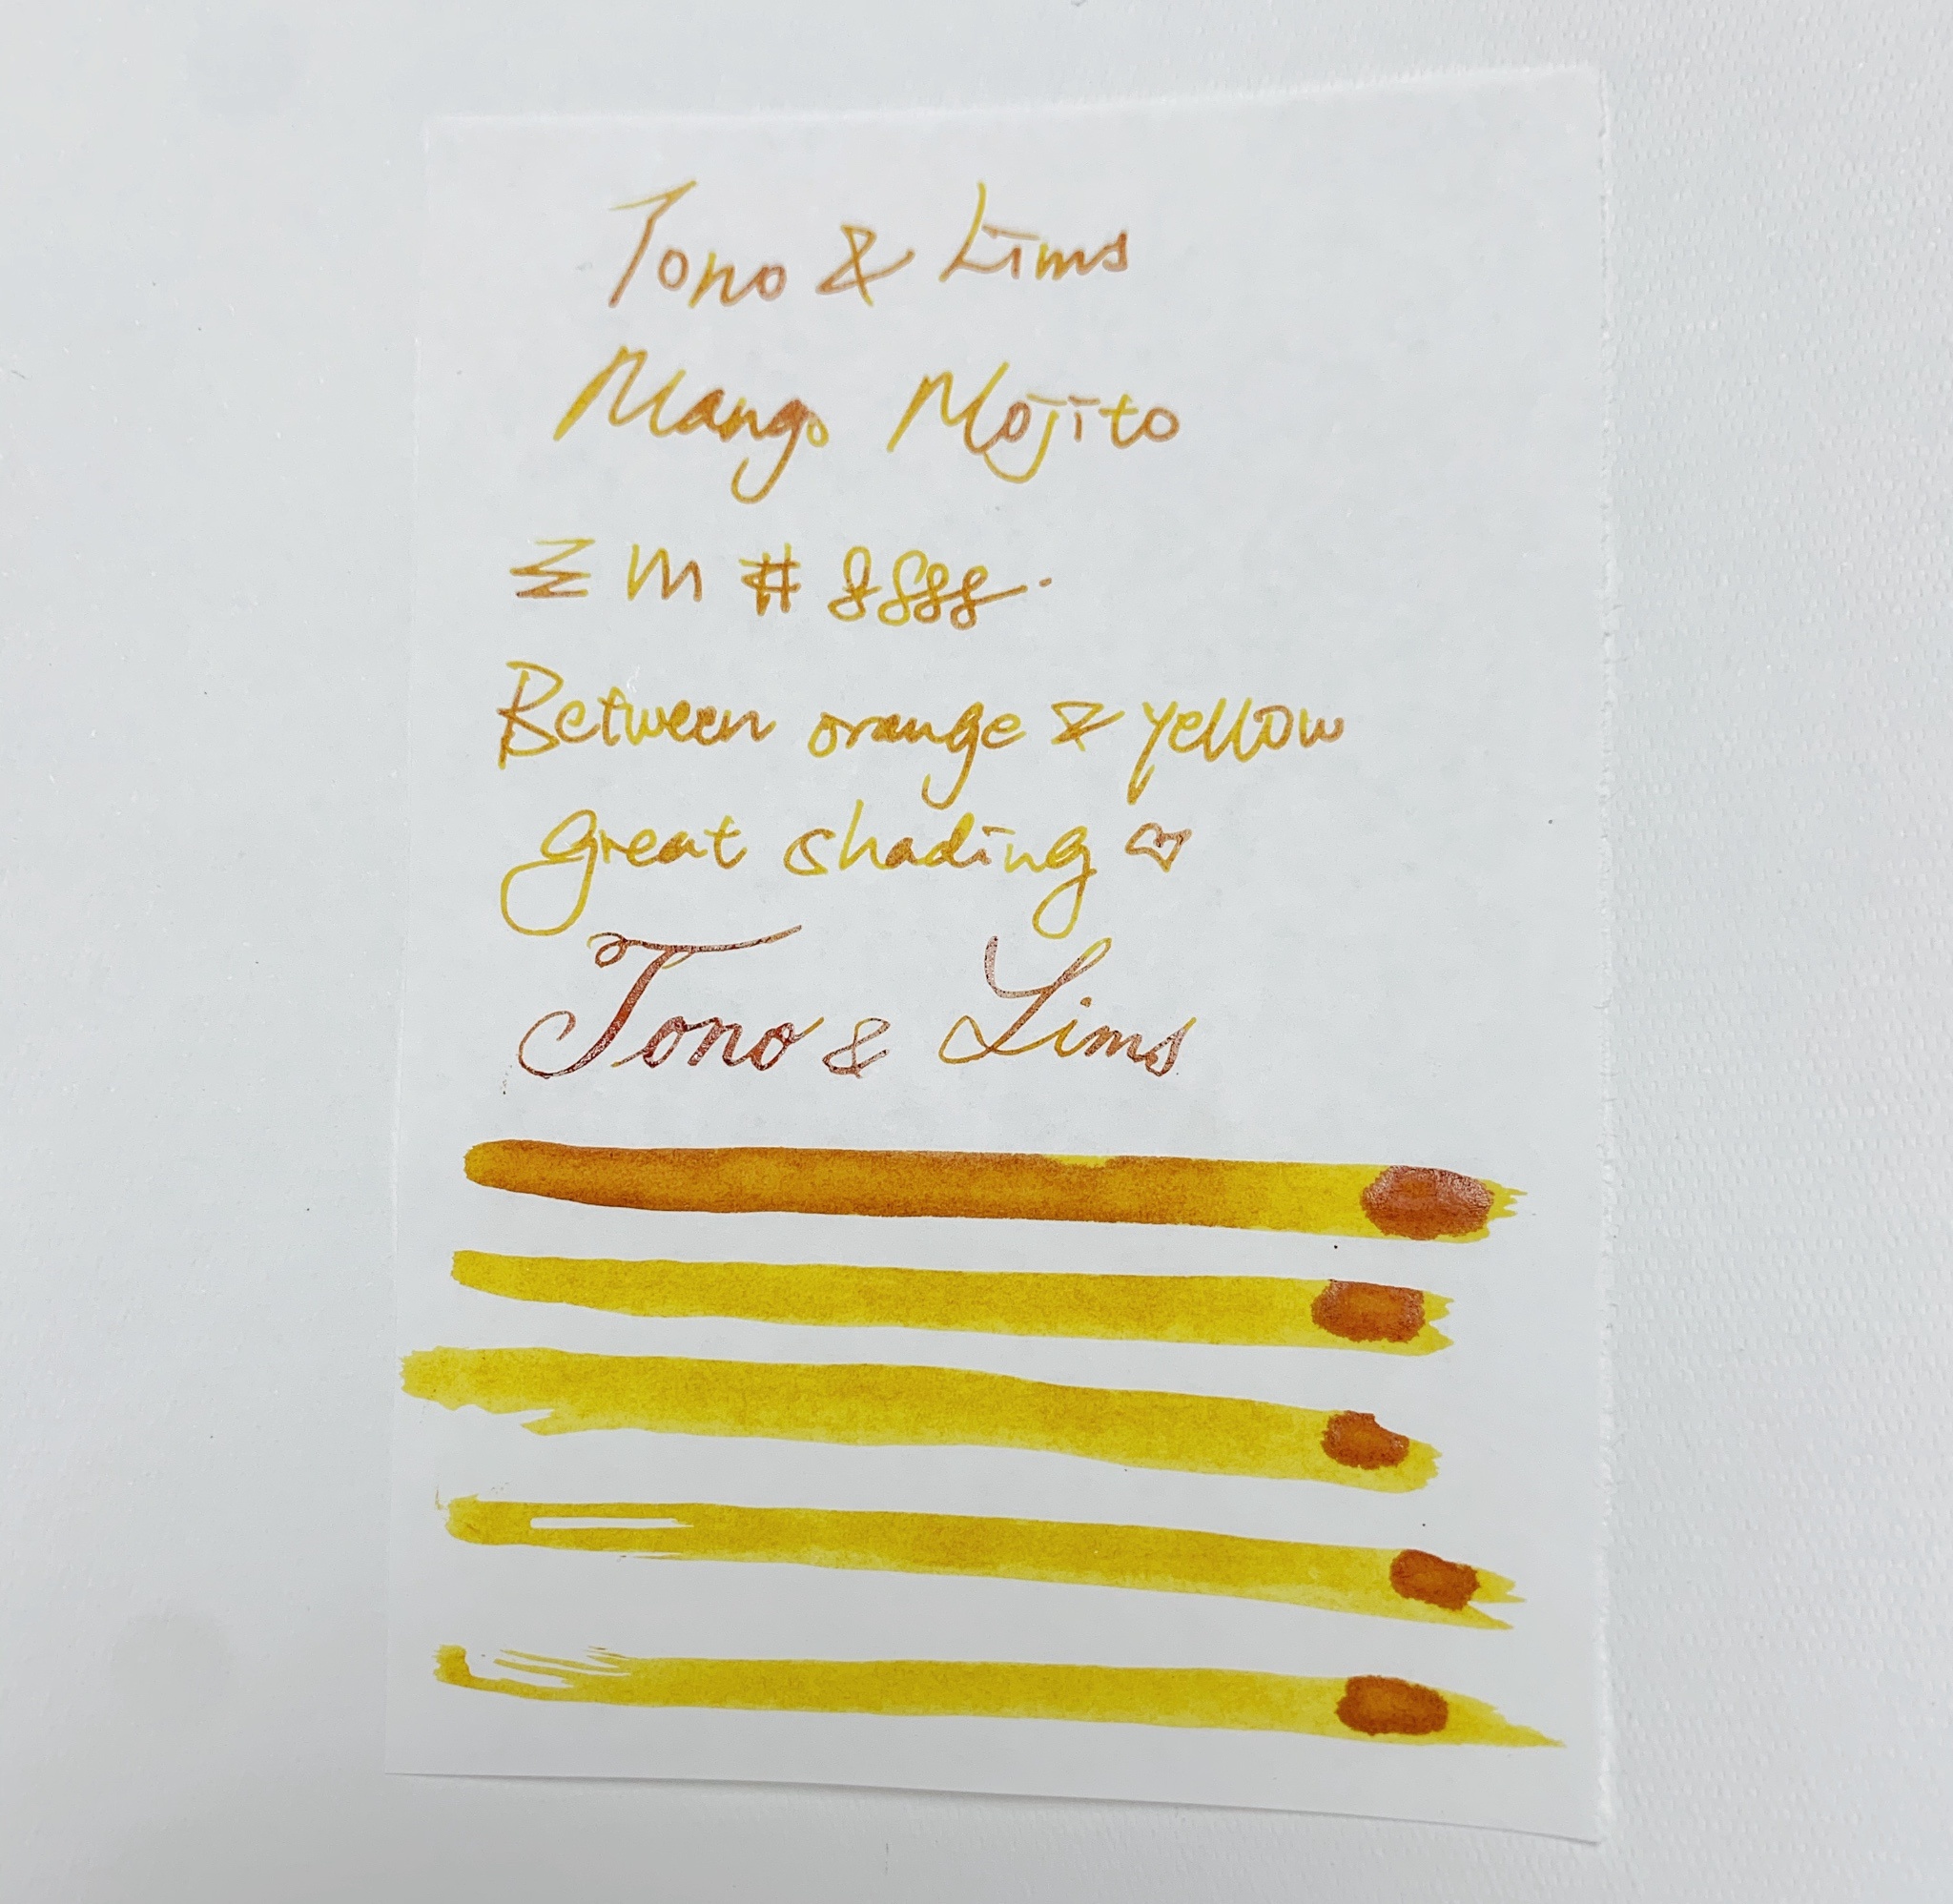 Tono & Lims
Mango Mojito
m # 8888.
Between orange & yellow
great shading ♡
Tono & Lims